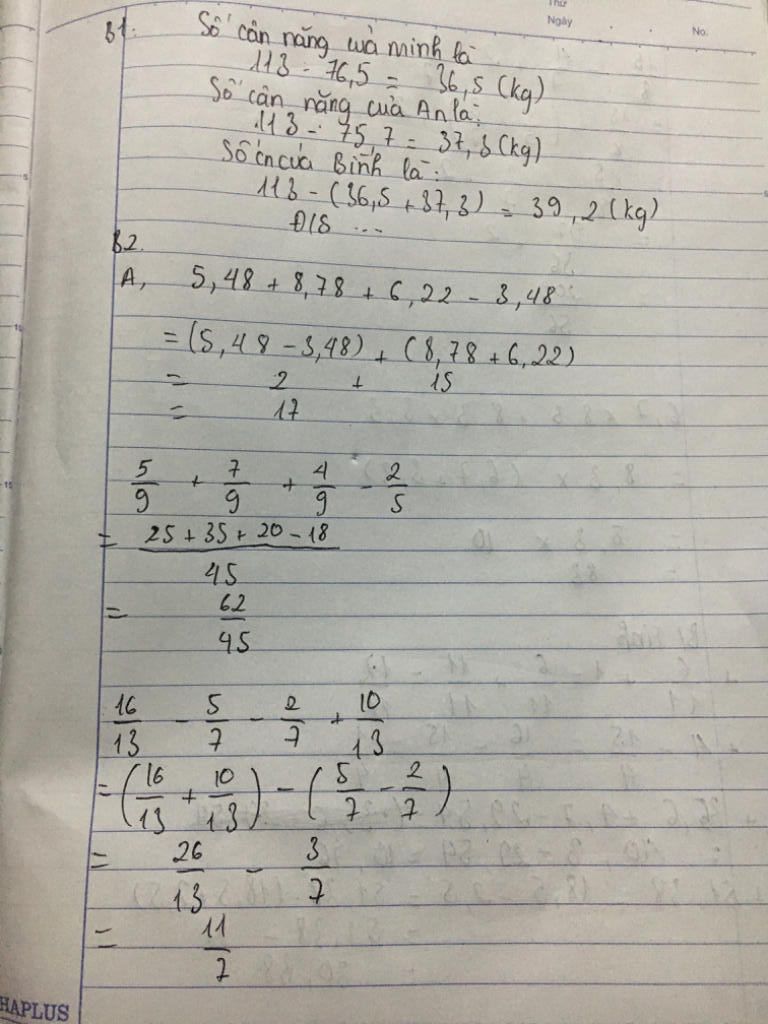 Thứ
Ngày No.
B1. Số cân nặng của minh là
113 - 76,5 = 36,5 (kg)
Số cân nặng của An là:
113 - 75,7 = 37,3 (kg)
Số cn của Bình là:
113 - (36,5 + 37,3) = 39,2 (kg)
Đ/S ...
B2.
A, 5,48 + 8,78 + 6,22 - 3,48
= (5,48 - 3,48) + (8,78 + 6,22)
= 2 + 15
= 17
5/9 + 7/9 + 4/9 - 2/5
= (25 + 35 + 20 - 18)/45
= 62/45
16/13 - 5/7 - 2/7 + 10/13
= (16/13 + 10/13) - (5/7 - 2/7)
= 26/13 - 3/7
= 11/7
HAPLUS